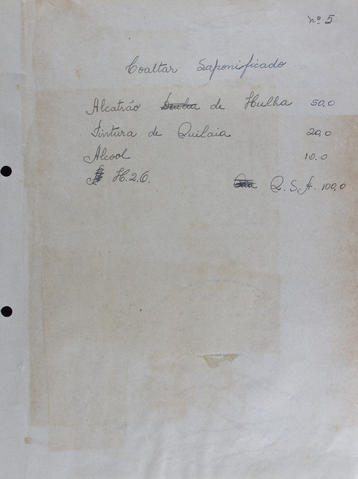 nº 5
Coaltar Saponificado
Alcatrão de Hulha 50,0
Tintura de Quilaia 20,0
Alcool 10.0
H.2.O. Q.S.A. 100,0